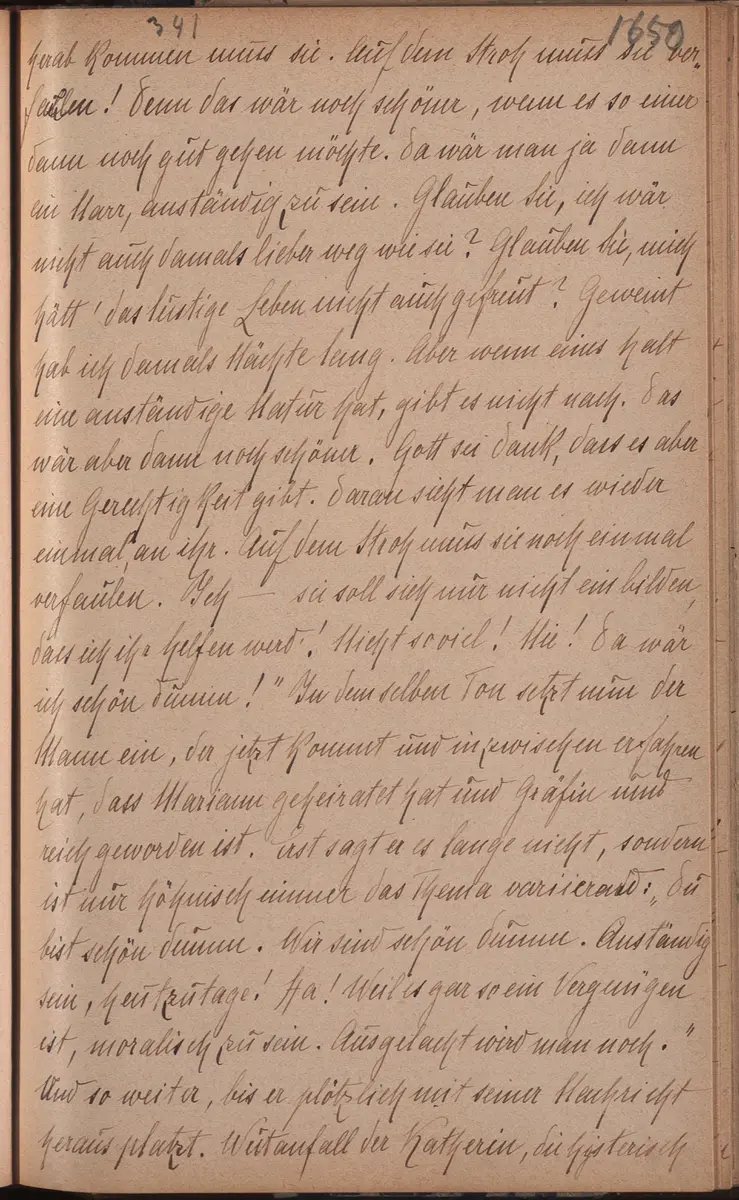 341
1650
herab kommen muss sie. Auf dem Stroh muss sie ver-
faulen! Denn das wär noch schöner, wenn es so einer
dann noch gut gehen möchte. Da wär man ja dann
ein Narr, anständig zu sein. Glauben Sie, ich wär
nicht auch damals lieber weg wie sie? Glauben Sie, mich
hätt' das lustige Leben nicht auch gefreut? Geweint
hab ich damals Nächte lang. Aber wenn eins halt
eine anständige Natur hat, gibt es nicht nach. Das
wär aber dann noch schöner. Gott sei Dank, dass es aber
eine Gerechtigkeit gibt. Daran sieht man es wieder
einmal, an ihr. Auf dem Stroh muss sie noch einmal
verfaulen. Ich — sie soll sich nur nicht einbilden,
dass ich ihr helfen werd'! Nicht so viel! Nie! Da wär
ich schön dumm!" In demselben Ton setzt nun der
Mann ein, der jetzt kommt und inzwischen erfahren
hat, dass Mariann geheiratet hat und Gräfin und
reich geworden ist. Erst sagt er es lange nicht, sondern
ist nur höhnisch immer das Thema variierend: „Du
bist schön dumm. Wir sind schön dumm. Anständig
sein, heutzutage! Ha! Weil es gar so ein Vergnügen
ist, moralisch zu sein. Ausgelacht wird man noch."
Und so weiter, bis er plötzlich mit seiner Nachricht
herausplatzt. Wutanfall der Katherin, die hysterisch